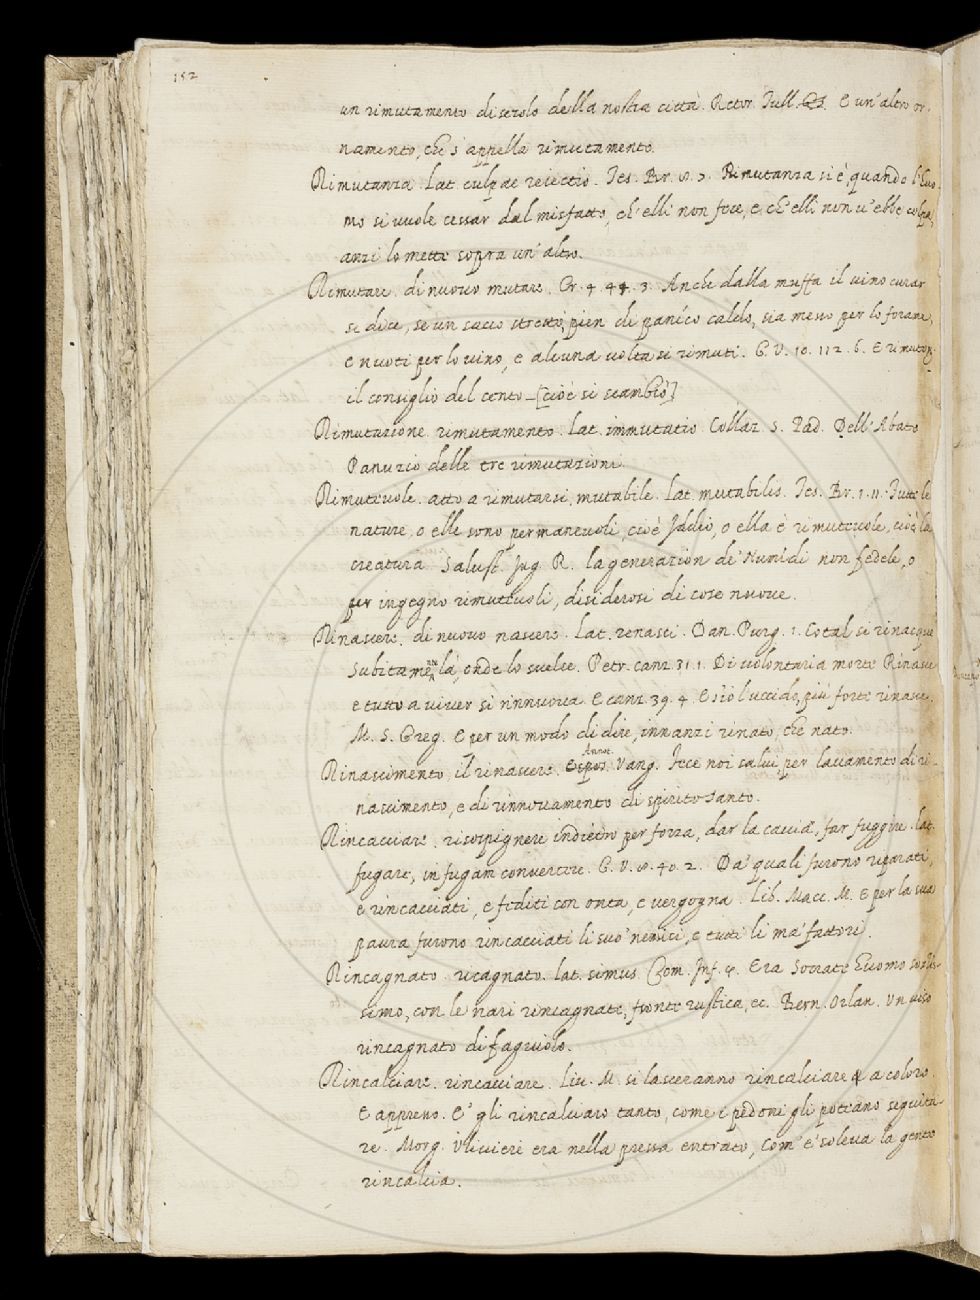 152
un rimutamento di secolo della nostra città. Rettor. Tull. E un'altro or-
namento, che s'appella rimutamento.
Rimutanza. Lat. culpae reiectio. Tes. Br. 8. 5. Rimutanza si è, quando l'huo-
mo si vuole cessar dal misfatto, ch'elli non fece, e ch'elli non v'ebbe colpa,
anzi lo mette sopra un'altro.
Rimutare. di nuovo mutare. Cr. 4. 44. 3. Anche dalla muffa il vino curar
si dice, se un sacco stretto, pien di panico caldo, sia messo per lo forame,
e nuoti per lo vino, e alcuna volta si rimuti. G. V. 10. 112. 6. E rimutossi
il consiglio del cento _ [cioè si scambiò]
Rimutazione. rimutamento. Lat. immutatio. Collaz. S. Pad. Dell'Abate
Panuzio delle tre rimutazioni.
Rimutevole. atto a rimutarsi, mutabile. Lat. mutabilis. Tes. Br. 1. 11. Tutte le
nature, o elle sono permanevoli, cioè Iddio, o ella è rimutevole, cioè la
creatura. Salust. Jug. R. la generazion de' Numidi non fedele, o
per ingegno rimutevoli, disiderosi di cose nuove.
Rinascere. di nuovo nascere. Lat. renasci. Dan. Purg. 1. Cotal si rinacque
Subitamente là, onde lo svelse. Petr. canz. 31. 1. Di volontaria morte Rinasce
e tutto a viver si rinnuova. E canz. 39. 4. E s'io l'uccido, più forte rinasce.
M. S. Greg. E per un modo di dire, innanzi rinato, che nato.
Rinascimento, il rinascere. Espos. Annot. Vang. Fece noi salvi, per lavamento di ri-
nascimento, e di rinnovamento di spirito santo.
Rincacciare. risospignere indietro per forza, dar la caccia, far fuggire. lat.
fugare, in fugam convertere. G. V. 8. 40. 2. Da' quali furono riparati,
e rincacciati, e fediti con onta, e vergogna. Lib. Macc. M. E per la sua
paura furono rincacciati li suo' nemici, e tutti li ma' fattori.
Rincagnato. ricagnato. lat. simus. Com. Inf. 4. Era Socrate huomo sozzis-
simo, con le nari rincagnate, fronte rustica, ec. Bern. Orlan. Un viso
rincagnato di fagiuolo.
Rincalciare. rincacciare. Liv. M. si lasceranno rincalciare a coloro.
E appresso. E' gli rincalciaro tanto, come i pedoni gli potéano seguita-
re. Morg. Ulivieri era nella pressa entrato, Com'e' soleva la gente
rincalcia.